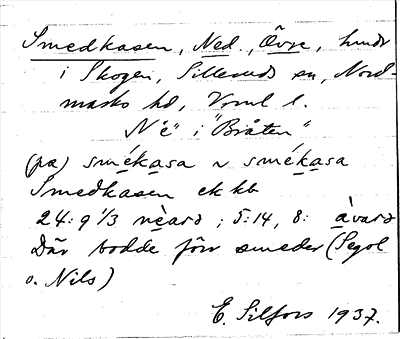 Smedkasen, Ned., Övre, hmdr
i Skogen, Silleruds sn, Nord-
marks hd, Vrml l.
N "ë" i "Bråten"
(pa) smékasa ~ smékasa
Smedkasen ek kb
24: 9 1/3 nèard ; 5:14, 8: åvard
Där bodde förr smeder (Segol
o. Nils)
E. Silfors 1937.